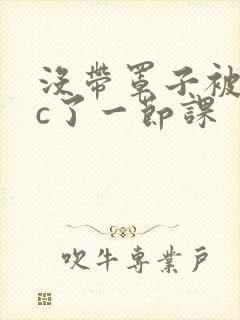 没带罩子被
c了一节课
吹牛专业户